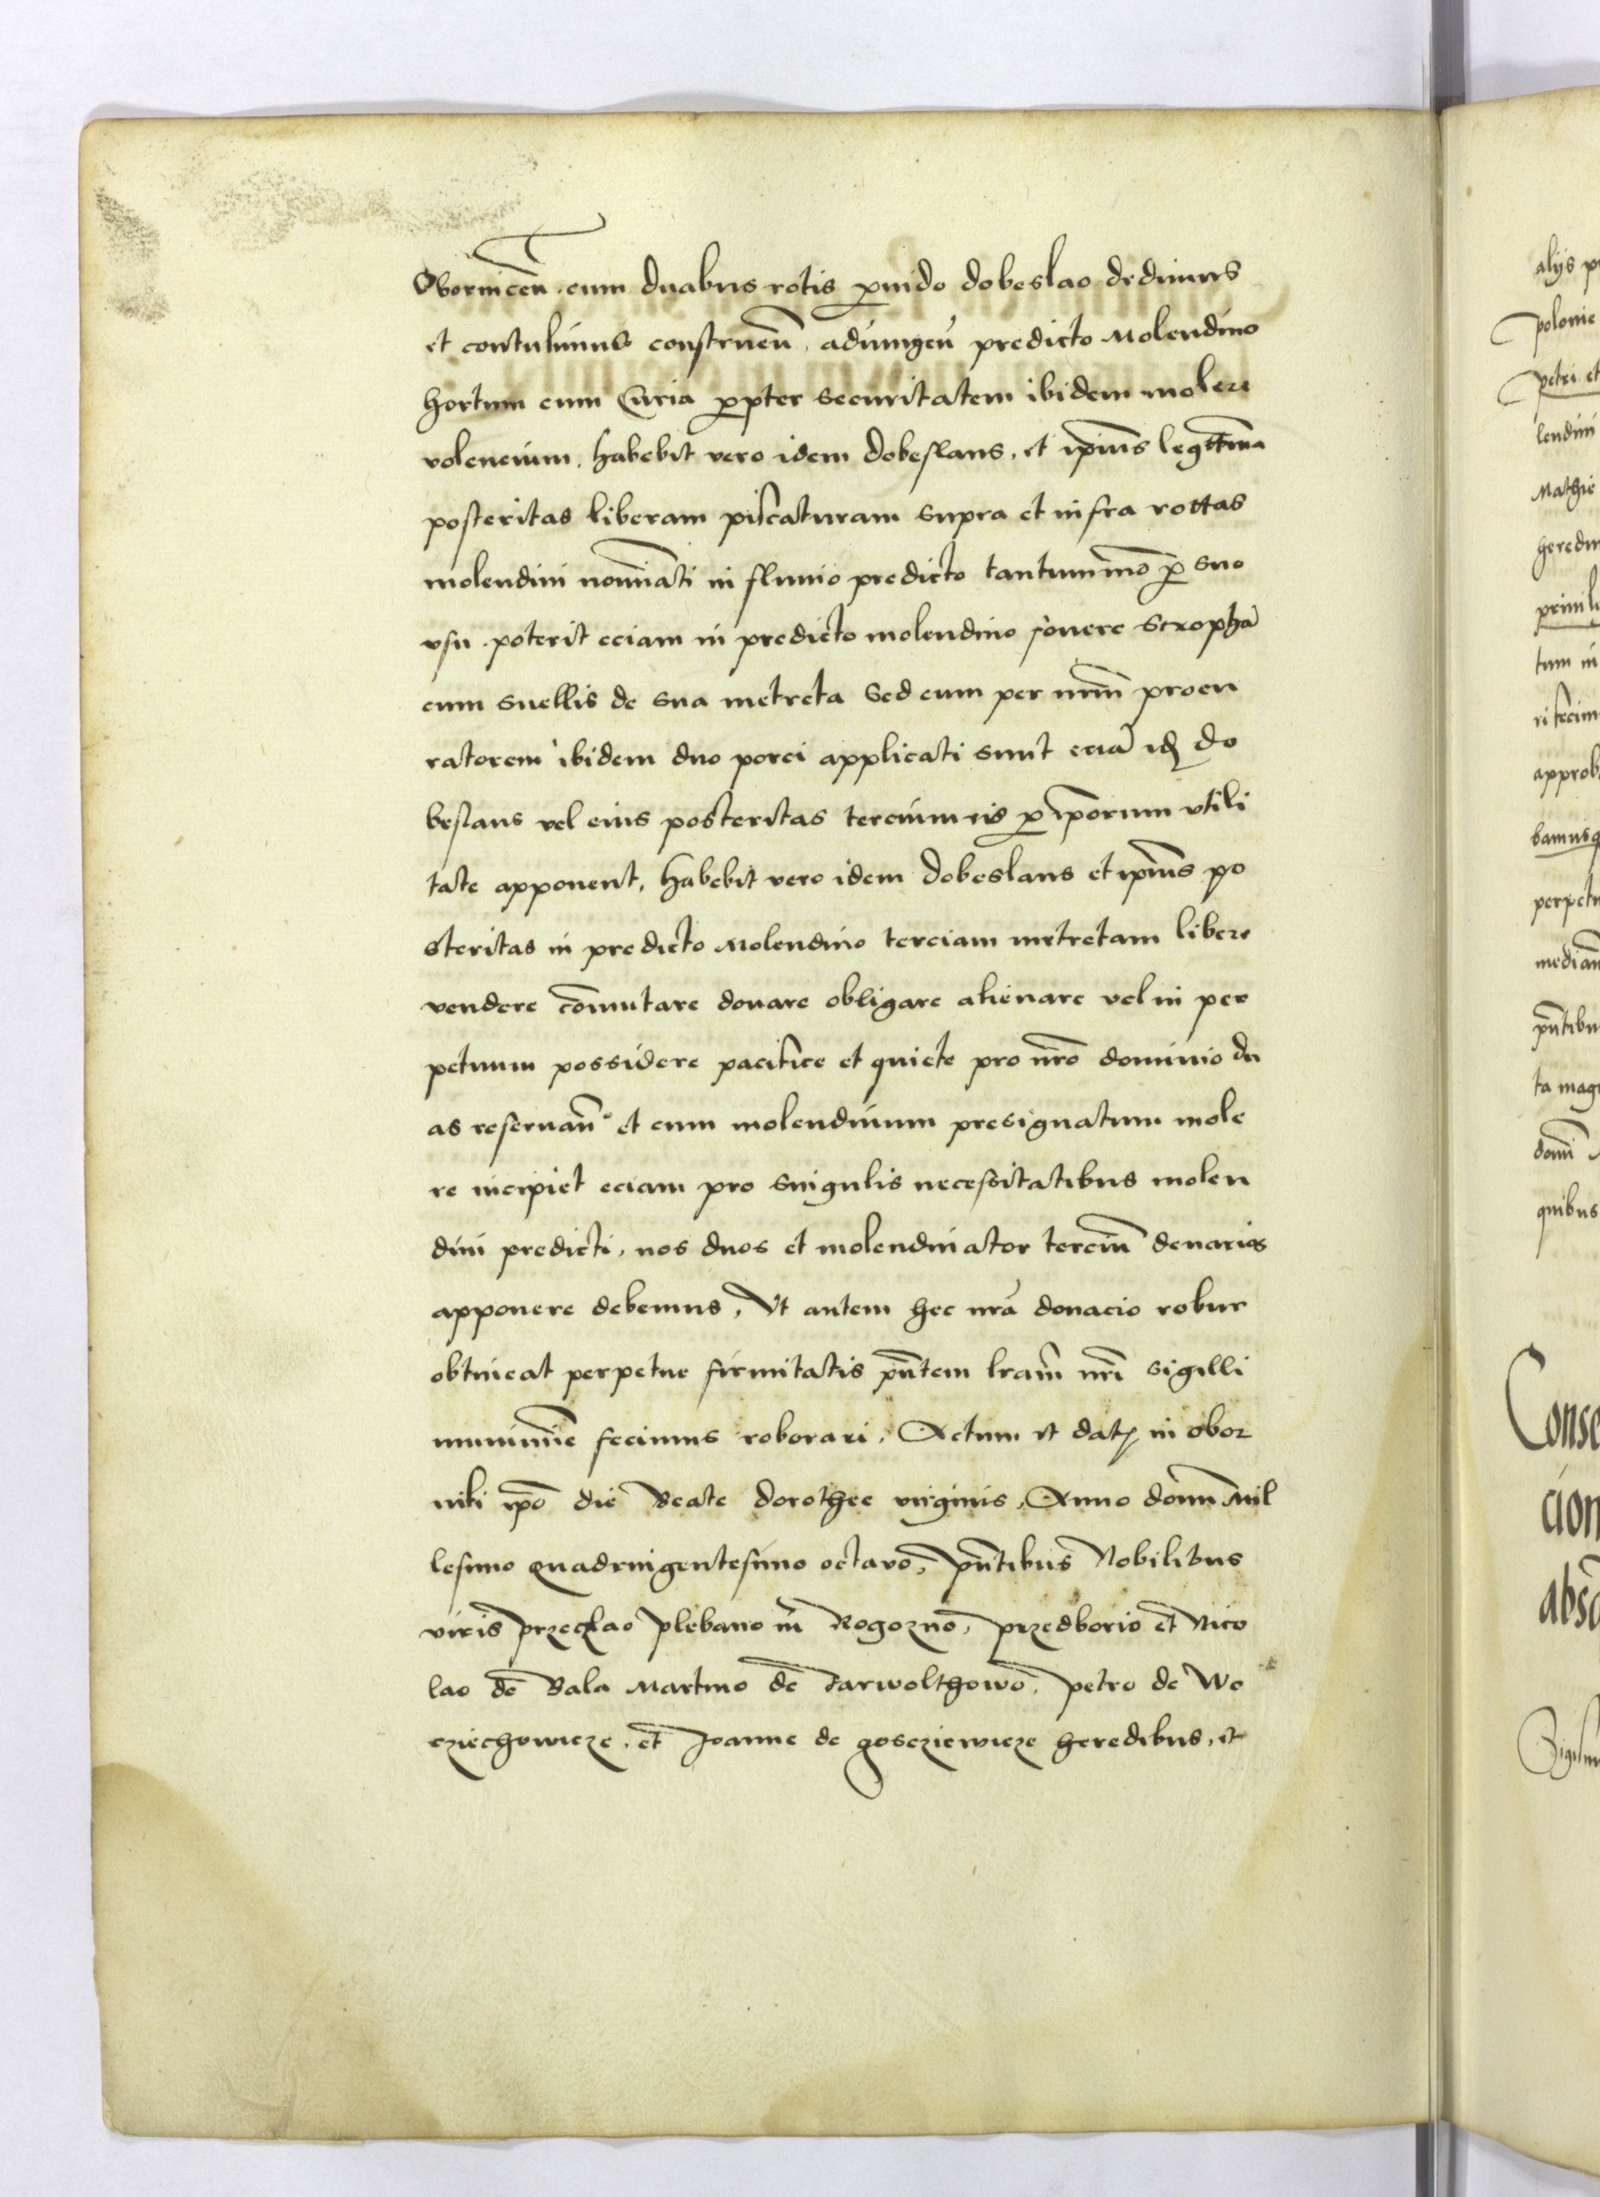 Obornicen̄ . cum duabus rotis ꝓuido dobeslao dedimus
et contulimus construen̄ . adiungen̄ predicto Molendino
hortum cum Curia ꝓpter securitatem ibidem molere
volencium . habebit vero idem dobeslaus . et ip̄ius legittima
posteritas liberam piscaturam supra et infra rottas
molendini nomiāti in fluuio predicto tantummō ꝓ suo
vsu . poterit eciam in predicto molendino fouere scrophā
cum suellis de sua metreta Sed cum per nr̄m procu
ratorem ibidem duo porci applicati sunt eciā id̄ do
beslaus vel eius posteritas tercium eis ꝓ ip̄orum vtili
tate apponent , habebit vero idem dobeslaus et ip̄ius po
steritas in predicto Molendino terciam metretam libere
vendere cōmutare donare obligare alienare vel in per
petuum possidere pacifice et quiete pro nr̄o dominio du
as reseruan̄ et cum molendinum presignatum mole
re incipiet eciam pro singulis necessitatibus molen
dini predicti , nos duos et molendinator terciūm denarios
apponere debemus , Vt autem hec nr̄a donacio robur
obtineat perpetue firmitatis pn̄tem lr̄am nr̄i sigilli
munimīe fecimus roborari , Actum et dat̄ in obor
niki ip̄o die Beate dorothee virginis , Anno domī Mil
lesimo quadringentesimo octavo , pn̄tibus Nobilibus
viris przeclao plebano in Rogozno , przedborio et Nico
lao de Bala Martino de Tarwolthowo , petro de Wo
cziechowicze , et Joanne de goscziewicze heredibus , et
alijs
polonie
petri et
lendini
Mathie
tum in
ri fecim
approb
bamusq
perpetu
median
pn̄tibu
ta mag
domī
quibus
Conse
cion